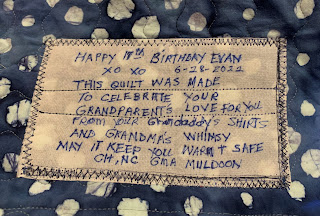 HAPPY 18th BIRTHDAY EVAN
XO XO 6-28-2022
THIS QUILT WAS MADE
TO CELEBRATE YOUR
GRANDPARENTS LOVE FOR YOU
FROM YOUR GRANDDADDY'S SHIRTS
AND GRANDMA'S WHIMSY
MAY IT KEEP YOU WARM + SAFE
CH, NC GMA MULDOON